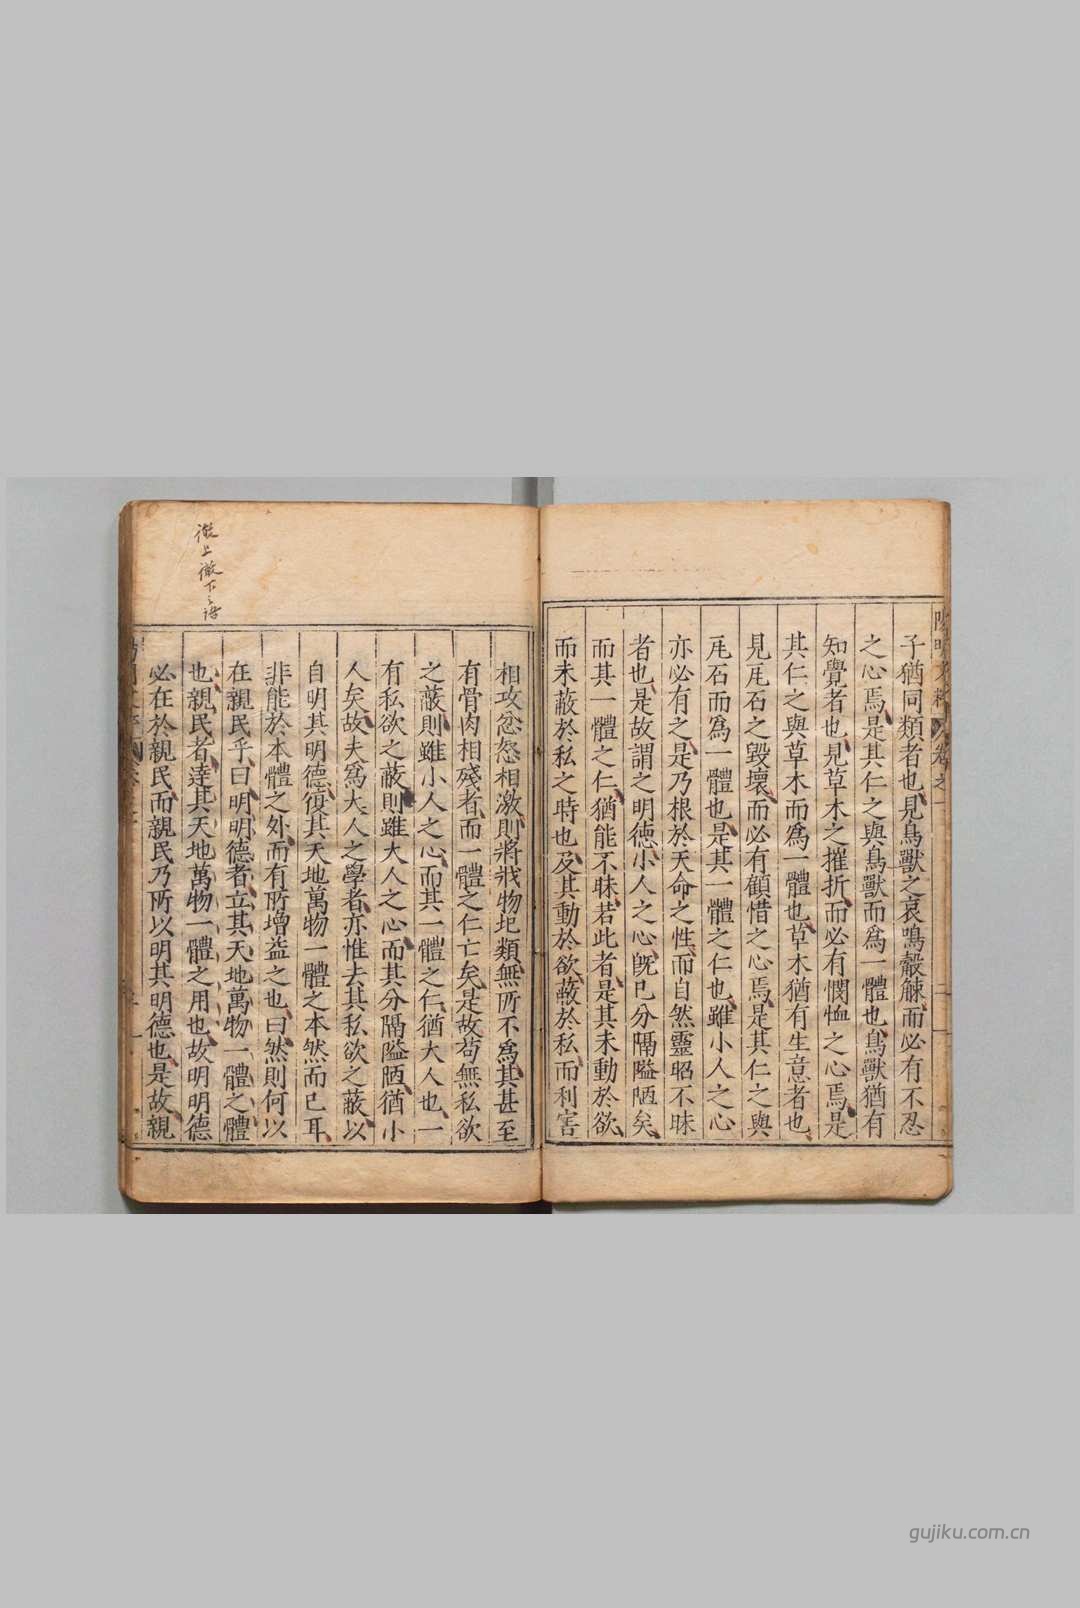 子猶同類者也見鳥獸之哀鳴觳觫而必有不忍
之心焉是其仁之與鳥獸而爲一體也鳥獸猶有
知覺者也見草木之摧折而必有憫恤之心焉是
其仁之與草木而爲一體也草木猶有生意者也
見瓦石之毀壞而必有顧惜之心焉是其仁之與
瓦石而爲一體也是其一體之仁也雖小人之心
亦必有之是乃根於天命之性而自然靈昭不昧
者也是故謂之明德小人之心旣已分隔隘陋矣
而其一體之仁猶能不昧若此者是其未動於欲
而未蔽於私之時也及其動於欲蔽於私而利害
徹上徹下之語
相攻忿怒相激則將戕物圮類無所不爲其甚至
有骨肉相殘者而一體之仁亡矣是故苟無私欲
之蔽則雖小人之心而其一體之仁猶大人也一
有私欲之蔽則雖大人之心而其分隔隘陋猶小
人矣故夫爲大人之學者亦惟去其私欲之蔽以
自明其明德復其天地萬物一體之本然而已耳
非能於本體之外而有所增益之也曰然則何以
在親民乎曰明明德者立其天地萬物一體之體
也親民者達其天地萬物一體之用也故明明德
必在於親民而親民乃所以明其明德也是故親
gujiku.com.cn